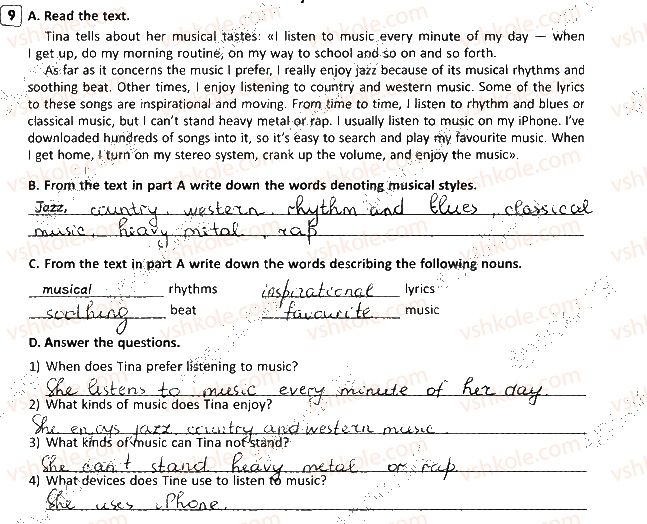 9 A. Read the text.
Tina tells about her musical tastes: «I listen to music every minute of my day — when
I get up, do my morning routine, on my way to school and so on and so forth.
As far as it concerns the music I prefer, I really enjoy jazz because of its musical rhythms and
soothing beat. Other times, I enjoy listening to country and western music. Some of the lyrics
to these songs are inspirational and moving. From time to time, I listen to rhythm and blues or
classical music, but I can't stand heavy metal or rap. I usually listen to music on my iPhone. I've
downloaded hundreds of songs into it, so it's easy to search and play my favourite music. When
I get home, I turn on my stereo system, crank up the volume, and enjoy the music».
B. From the text in part A write down the words denoting musical styles.
Jazz, country, western, rhythm and blues, classical
music, heavy metal, rap
C. From the text in part A write down the words describing the following nouns.
musical rhythms inspirational lyrics
soothing beat favourite music
D. Answer the questions.
1) When does Tina prefer listening to music?
She listens to music every minute of her day.
2) What kinds of music does Tina enjoy?
She enjoys jazz, country and western music.
3) What kinds of music can Tina not stand?
She can't stand heavy metal or rap.
4) What devices does Tine use to listen to music?
She uses iPhone.